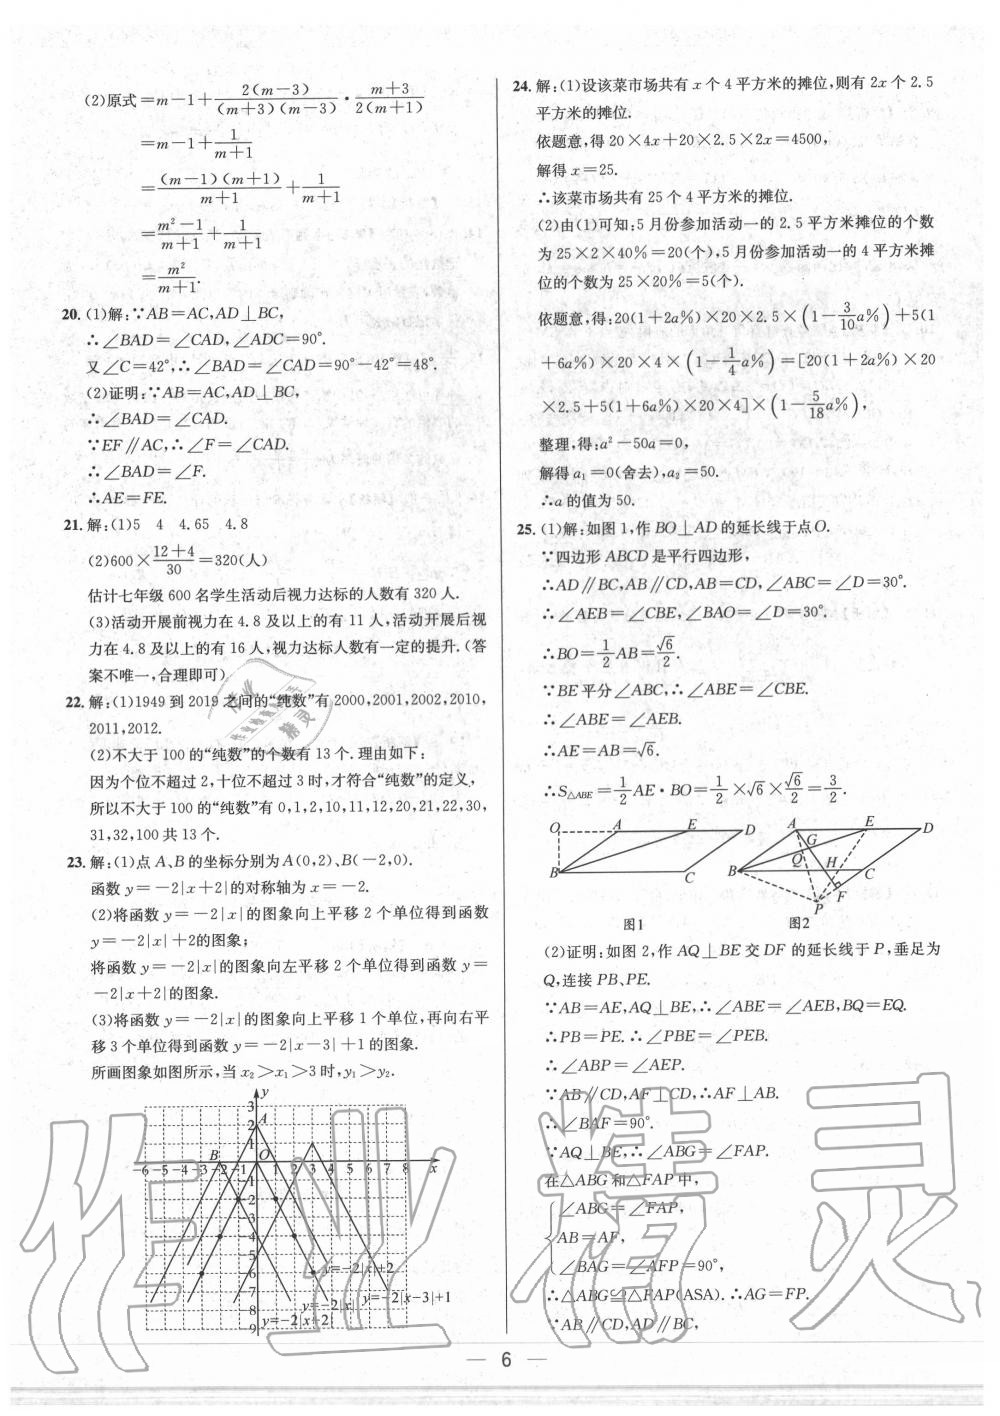 (2)原式=m-1+\frac{2(m-3)}{(m+3)(m-3)}·\frac{m+3}{2(m+1)}
=m-1+\frac{1}{m+1}
=\frac{(m-1)(m+1)}{m+1}+\frac{1}{m+1}
=\frac{m²-1}{m+1}+\frac{1}{m+1}
=\frac{m²}{m+1}.
20. (1)解:∵AB=AC,AD⊥BC,
∴∠BAD=∠CAD,∠ADC=90°.
又∠C=42°,∴∠BAD=∠CAD=90°-42°=48°.
(2)证明:∵AB=AC,AD⊥BC,
∴∠BAD=∠CAD.
∵EF∥AC,∴∠F=∠CAD.
∴∠BAD=∠F.
∴AE=FE.
21. 解:(1)5 4 4.65 4.8
(2)600×\frac{12+4}{30}=320(人)
估计七年级 600 名学生活动后视力达标的人数有 320 人.
(3)活动开展前视力在 4.8 及以上的有 11 人,活动开展后视
力在 4.8 及以上的有 16 人,视力达标人数有一定的提升.(答
案不唯一,合理即可)
22. 解:(1)1949 到 2019 之间的“纯数”有 2000,2001,2002,2010,
2011,2012.
(2)不大于 100 的“纯数”的个数有 13 个.理由如下:
因为个位不超过 2,十位不超过 3 时,才符合“纯数”的定义,
所以不大于 100 的“纯数”有 0,1,2,10,11,12,20,21,22,30,
31,32,100 共 13 个.
23. 解:(1)点 A、B 的坐标分别为 A(0,2)、B(-2,0).
函数 y=-2|x+2|的对称轴为 x=-2.
(2)将函数 y=-2|x|的图象向上平移 2 个单位得到函数
y=-2|x|+2的图象;
将函数 y=-2|x|的图象向左平移 2 个单位得到函数 y=
-2|x+2|的图象.
(3)将函数 y=-2|x|的图象向上平移 1 个单位,再向右平
移 3 个单位得到函数 y=-2|x-3|+1 的图象.
所画图象如图所示,当 x₂>x₁>3 时,y₁>y₂.
y
3
2 A
1
B O
-6-5-4-3-2-1 1 2 3 4 5 6 7 8 x
-2
-4
5
6
7
8
9
y=-2|x|+2
y=-2|x-3|+1
y=-2|x|
y=-2|x+2|
24. 解:(1)设该菜市场共有 x 个 4 平方米的摊位,则有 2x 个 2.5
平方米的摊位.
依题意,得 20×4x+20×2.5×2x=4500,
解得 x=25.
∴该菜市场共有 25 个 4 平方米的摊位.
(2)由(1)可知:5 月份参加活动一的 2.5 平方米摊位的个数
为 25×2×40%=20(个),5 月份参加活动一的 4 平方米摊
位的个数为 25×20%=5(个).
依题意,得:20(1+2a%)×20×2.5×(1-\frac{3}{10}a%)+5(1
+6a%)×20×4×(1-\frac{1}{4}a%)=[20(1+2a%)×20
×2.5+5(1+6a%)×20×4]×(1-\frac{5}{18}a%),
整理,得:a²-50a=0,
解得 a₁=0(舍去),a₂=50.
∴a 的值为 50.
25. (1)解:如图 1,作 BO⊥AD 的延长线于点O.
∵四边形 ABCD 是平行四边形,
∴AD∥BC,AB∥CD,AB=CD,∠ABC=∠D=30°.
∴∠AEB=∠CBE,∠BAO=∠D=30°.
∴BO=\frac{1}{2}AB=\frac{√6}{2}.
∵BE平分∠ABC,∴∠ABE=∠CBE.
∴∠ABE=∠AEB.
∴AE=AB=√6.
∴S△ABE=\frac{1}{2}AE·BO=\frac{1}{2}×√6×\frac{√6}{2}=\frac{3}{2}.
O A E D
B C
图1
A E D
G
Q H
B C
F
P
图2
(2)证明:如图 2,作 AQ⊥BE 交 DF 的延长线于 P,垂足为
Q,连接 PB、PE.
∵AB=AE,AQ⊥BE,∴∠ABE=∠AEB,BQ=EQ.
∴PB=PE.∴∠PBE=∠PEB.
∴∠ABP=∠AEP.
∵AB∥CD,AF⊥CD,∴AF⊥AB.
∴∠BAF=90°.
∵AQ⊥BE,∴∠ABG=∠FAP.
在△ABG和△FAP中,
∠ABG=∠FAP,
AB=AF,
∠BAG=∠AFP=90°,
∴△ABG≌△FAP(ASA).∴AG=FP.
∵AB∥CD,AD∥BC,
— 6 —
作业精灵
作业
精灵